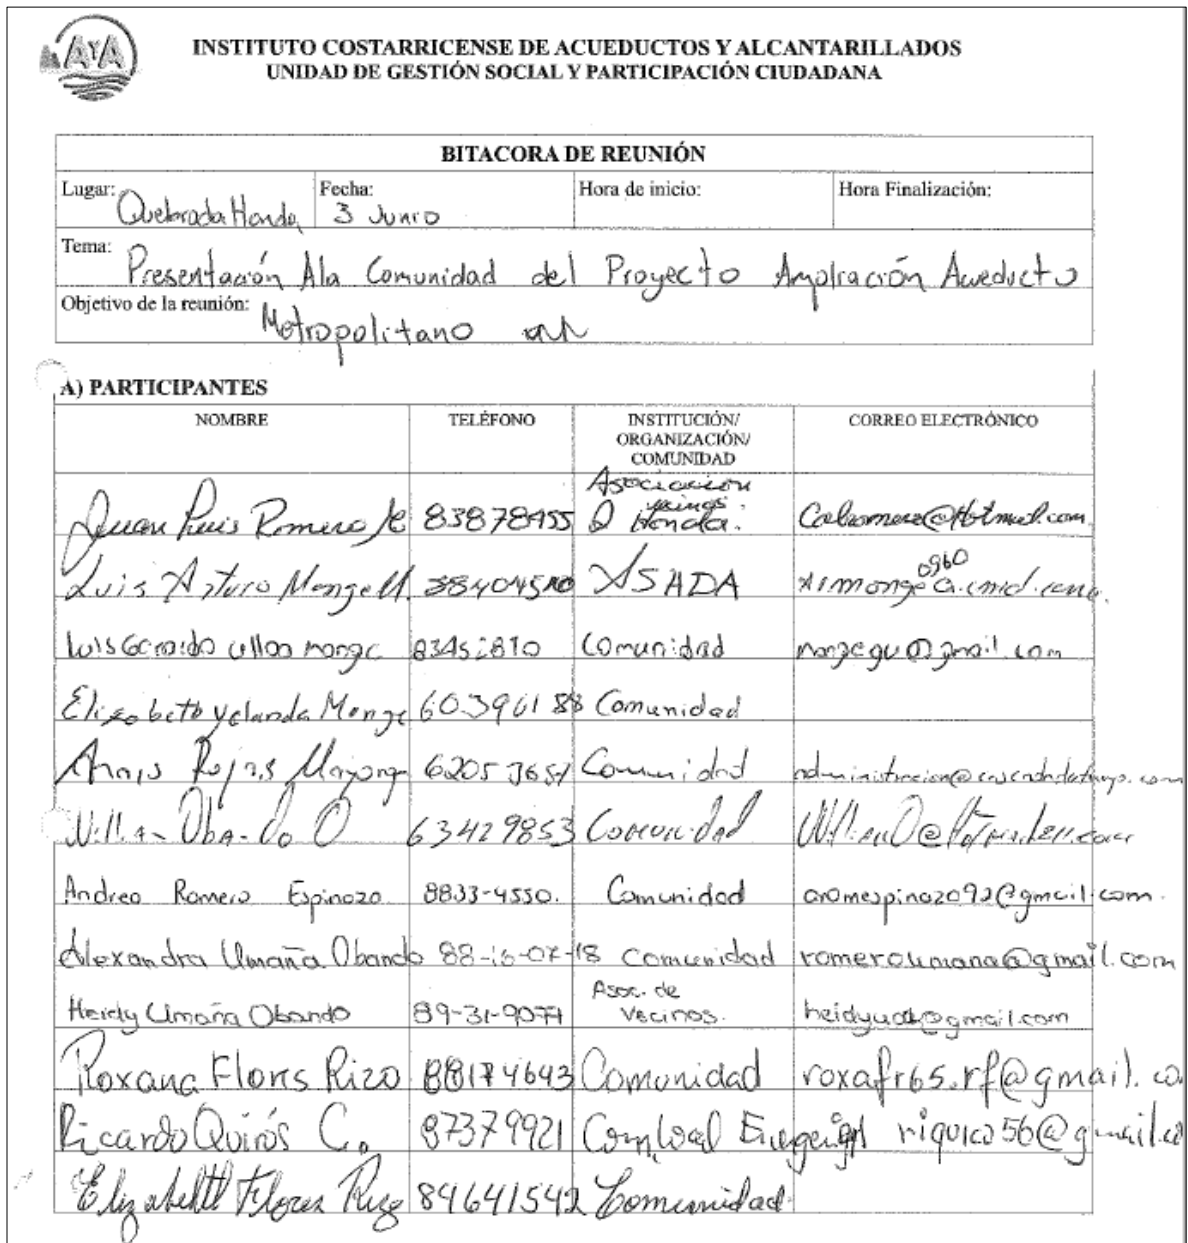 AYA
INSTITUTO COSTARRICENSE DE ACUEDUCTOS Y ALCANTARILLADOS
UNIDAD DE GESTIÓN SOCIAL Y PARTICIPACIÓN CIUDADANA
BITACORA DE REUNIÓN
Lugar: Quebrada Honda Fecha: 3 Junio Hora de inicio: Hora Finalización:
Tema: Presentación Ala Comunidad del Proyecto Ampliación Acueducto
Objetivo de la reunión: Metropolitano
A) PARTICIPANTES
NOMBRE TELÉFONO INSTITUCIÓN/ ORGANIZACIÓN/ COMUNIDAD CORREO ELECTRÓNICO
Juan Luis Romero 83878455 Asociacion vecinos Q Honda.
Luis Arturo Monge M. ASADA
Luis Gerardo ulloa monge Comunidad mongegu@gmail.com
Elizabeth Yolanda Monge 60396188 Comunidad
Rojas Mayorga 62053651 Comunidad
63429853 Comunidad
Andrea Romero Espinoza 8833-4550. Comunidad aromespinoza092@gmail.com.
Alexandra Umaña Obando Comunidad romeroumana@gmail.com
Heidy Umaña Obando 89-31-9077 Asoc. de Vecinos.
Roxana Flores Rizo 88174643 Comunidad roxafr65.rf@gmail.co
Ricardo Quirós C. 87379921 riquico56@gmail.co
Elizabeth Flores Rizo 84641542 Comunidad